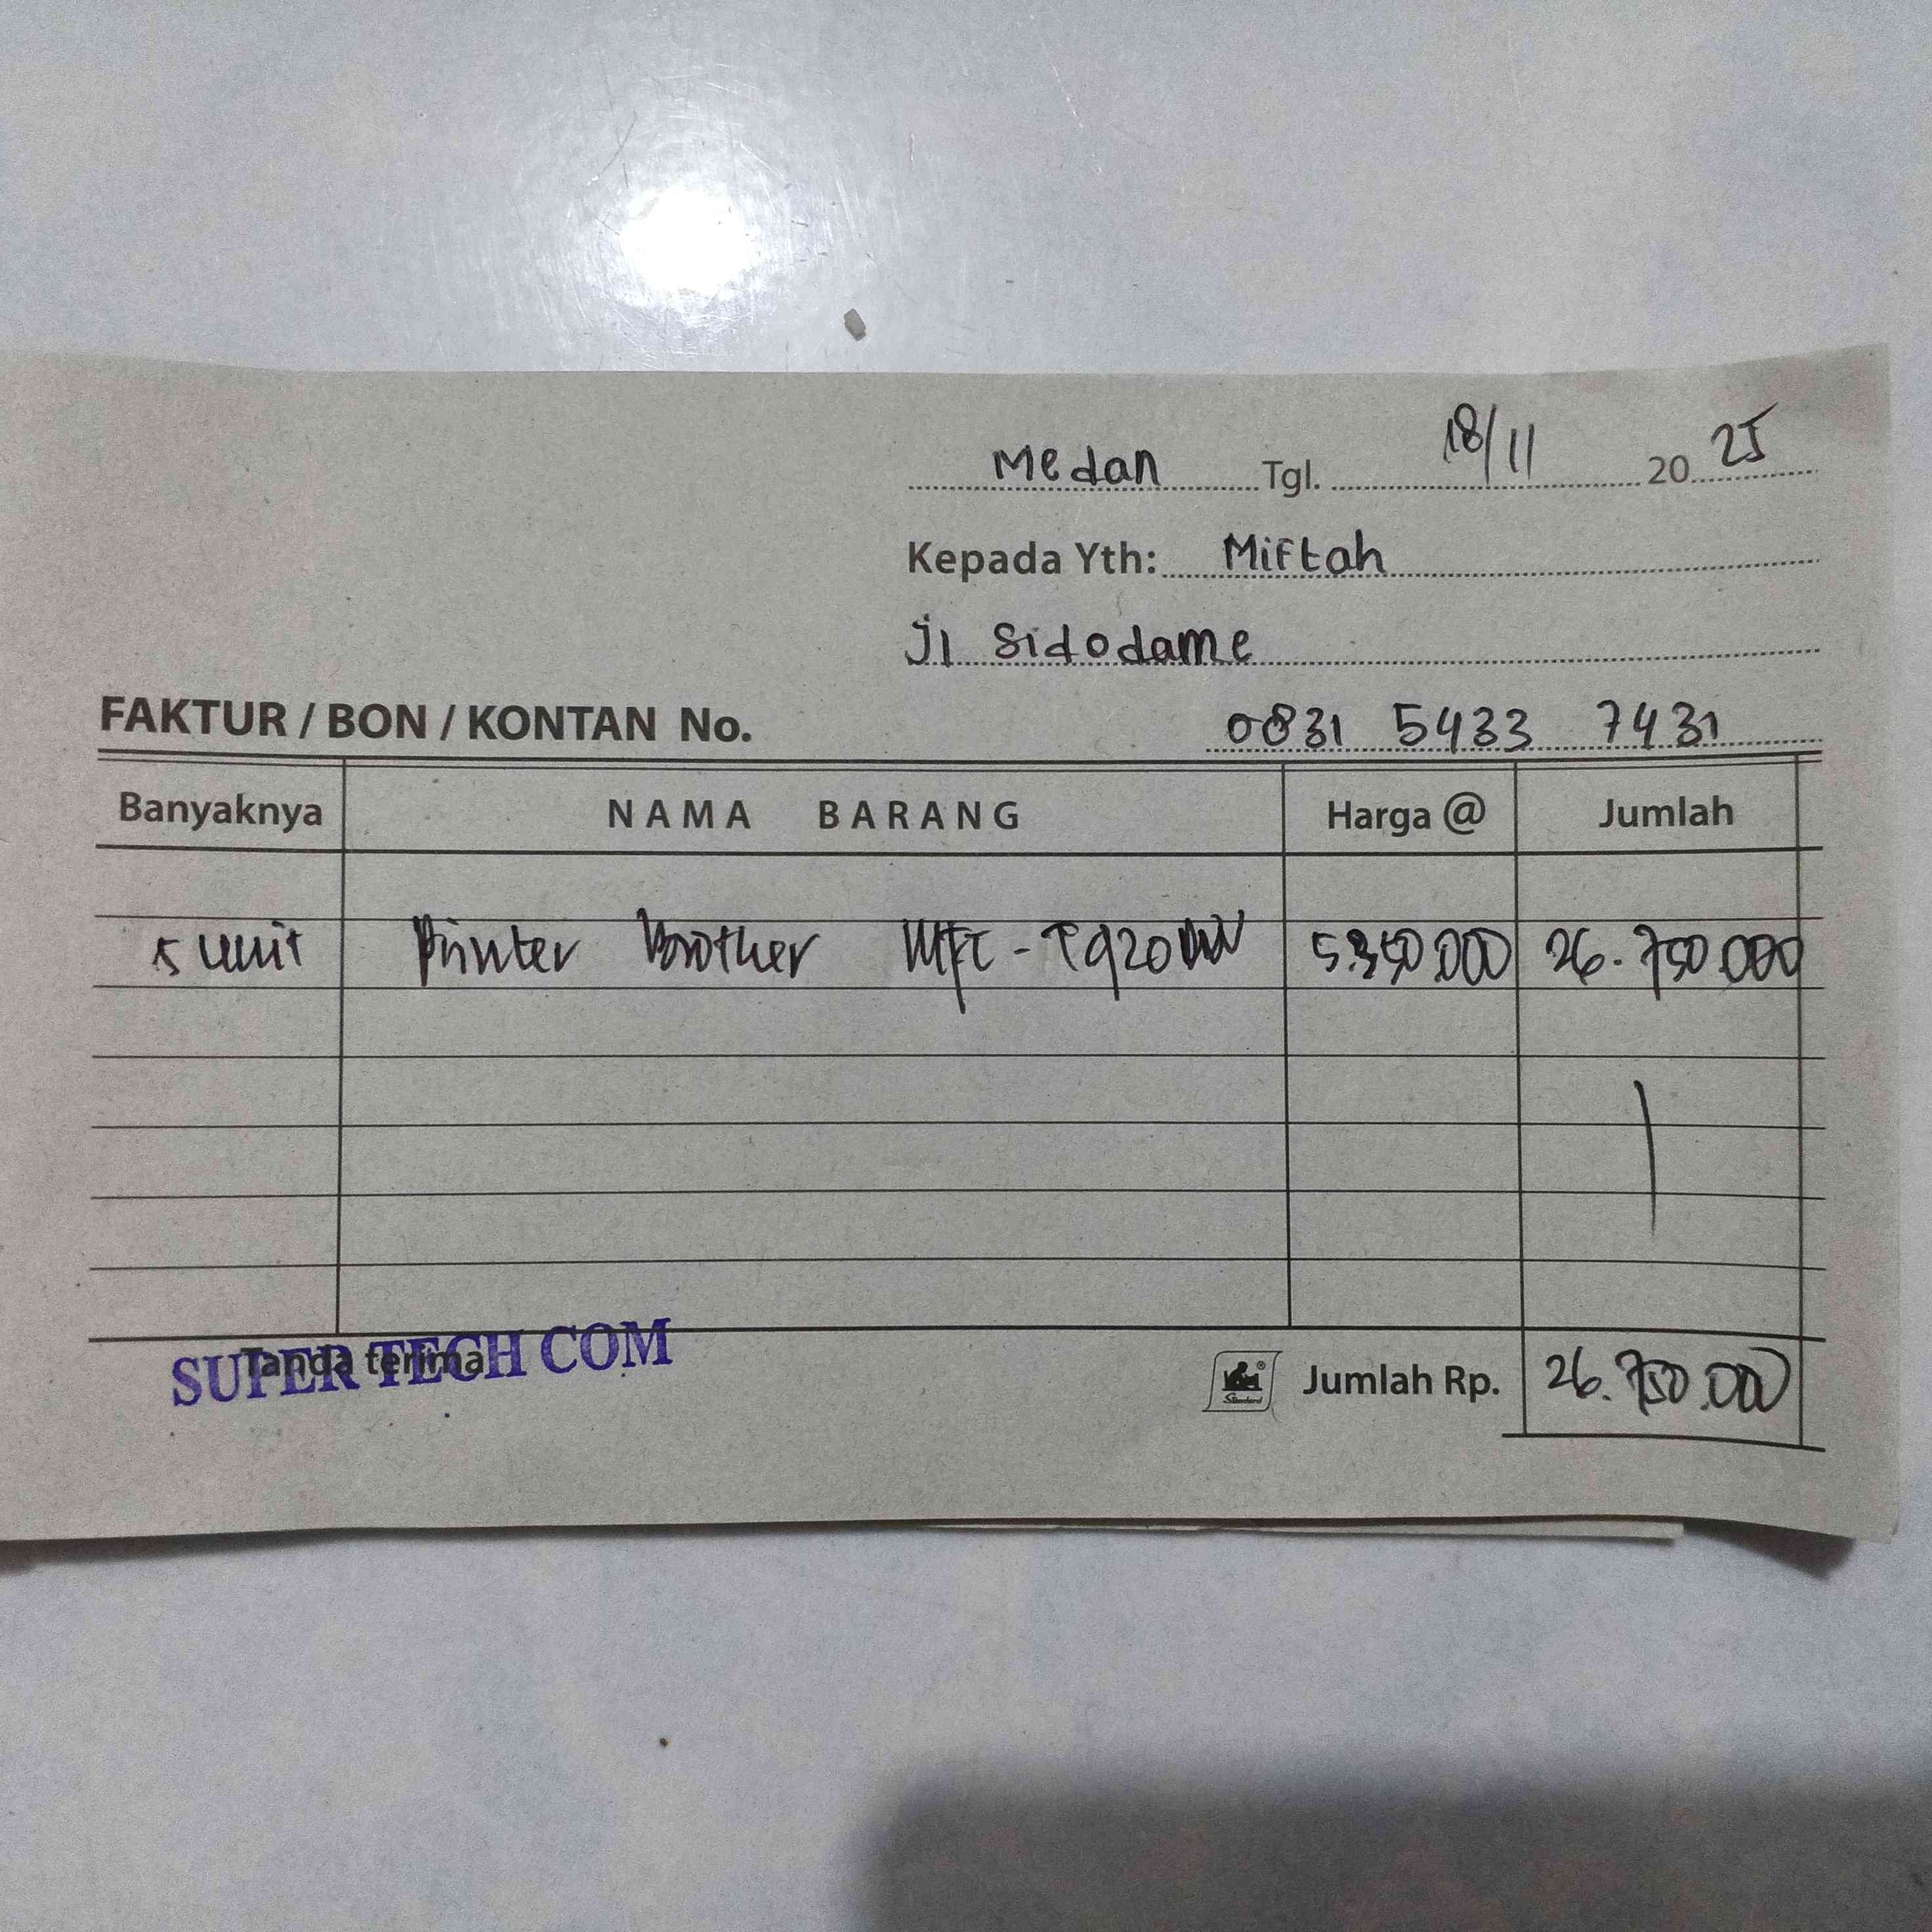 Medan Tgl. 18/11 20 25
Kepada Yth: Miftah
Jl Sidodame
FAKTUR / BON / KONTAN No. 0831 5433 7431
Banyaknya NAMA BARANG Harga @ Jumlah
5 unit Printer Brother MFC-T920DW 5.350.000 26.750.000
SUPER TECH COM
Tanda terima
Standard Jumlah Rp. 26.750.000